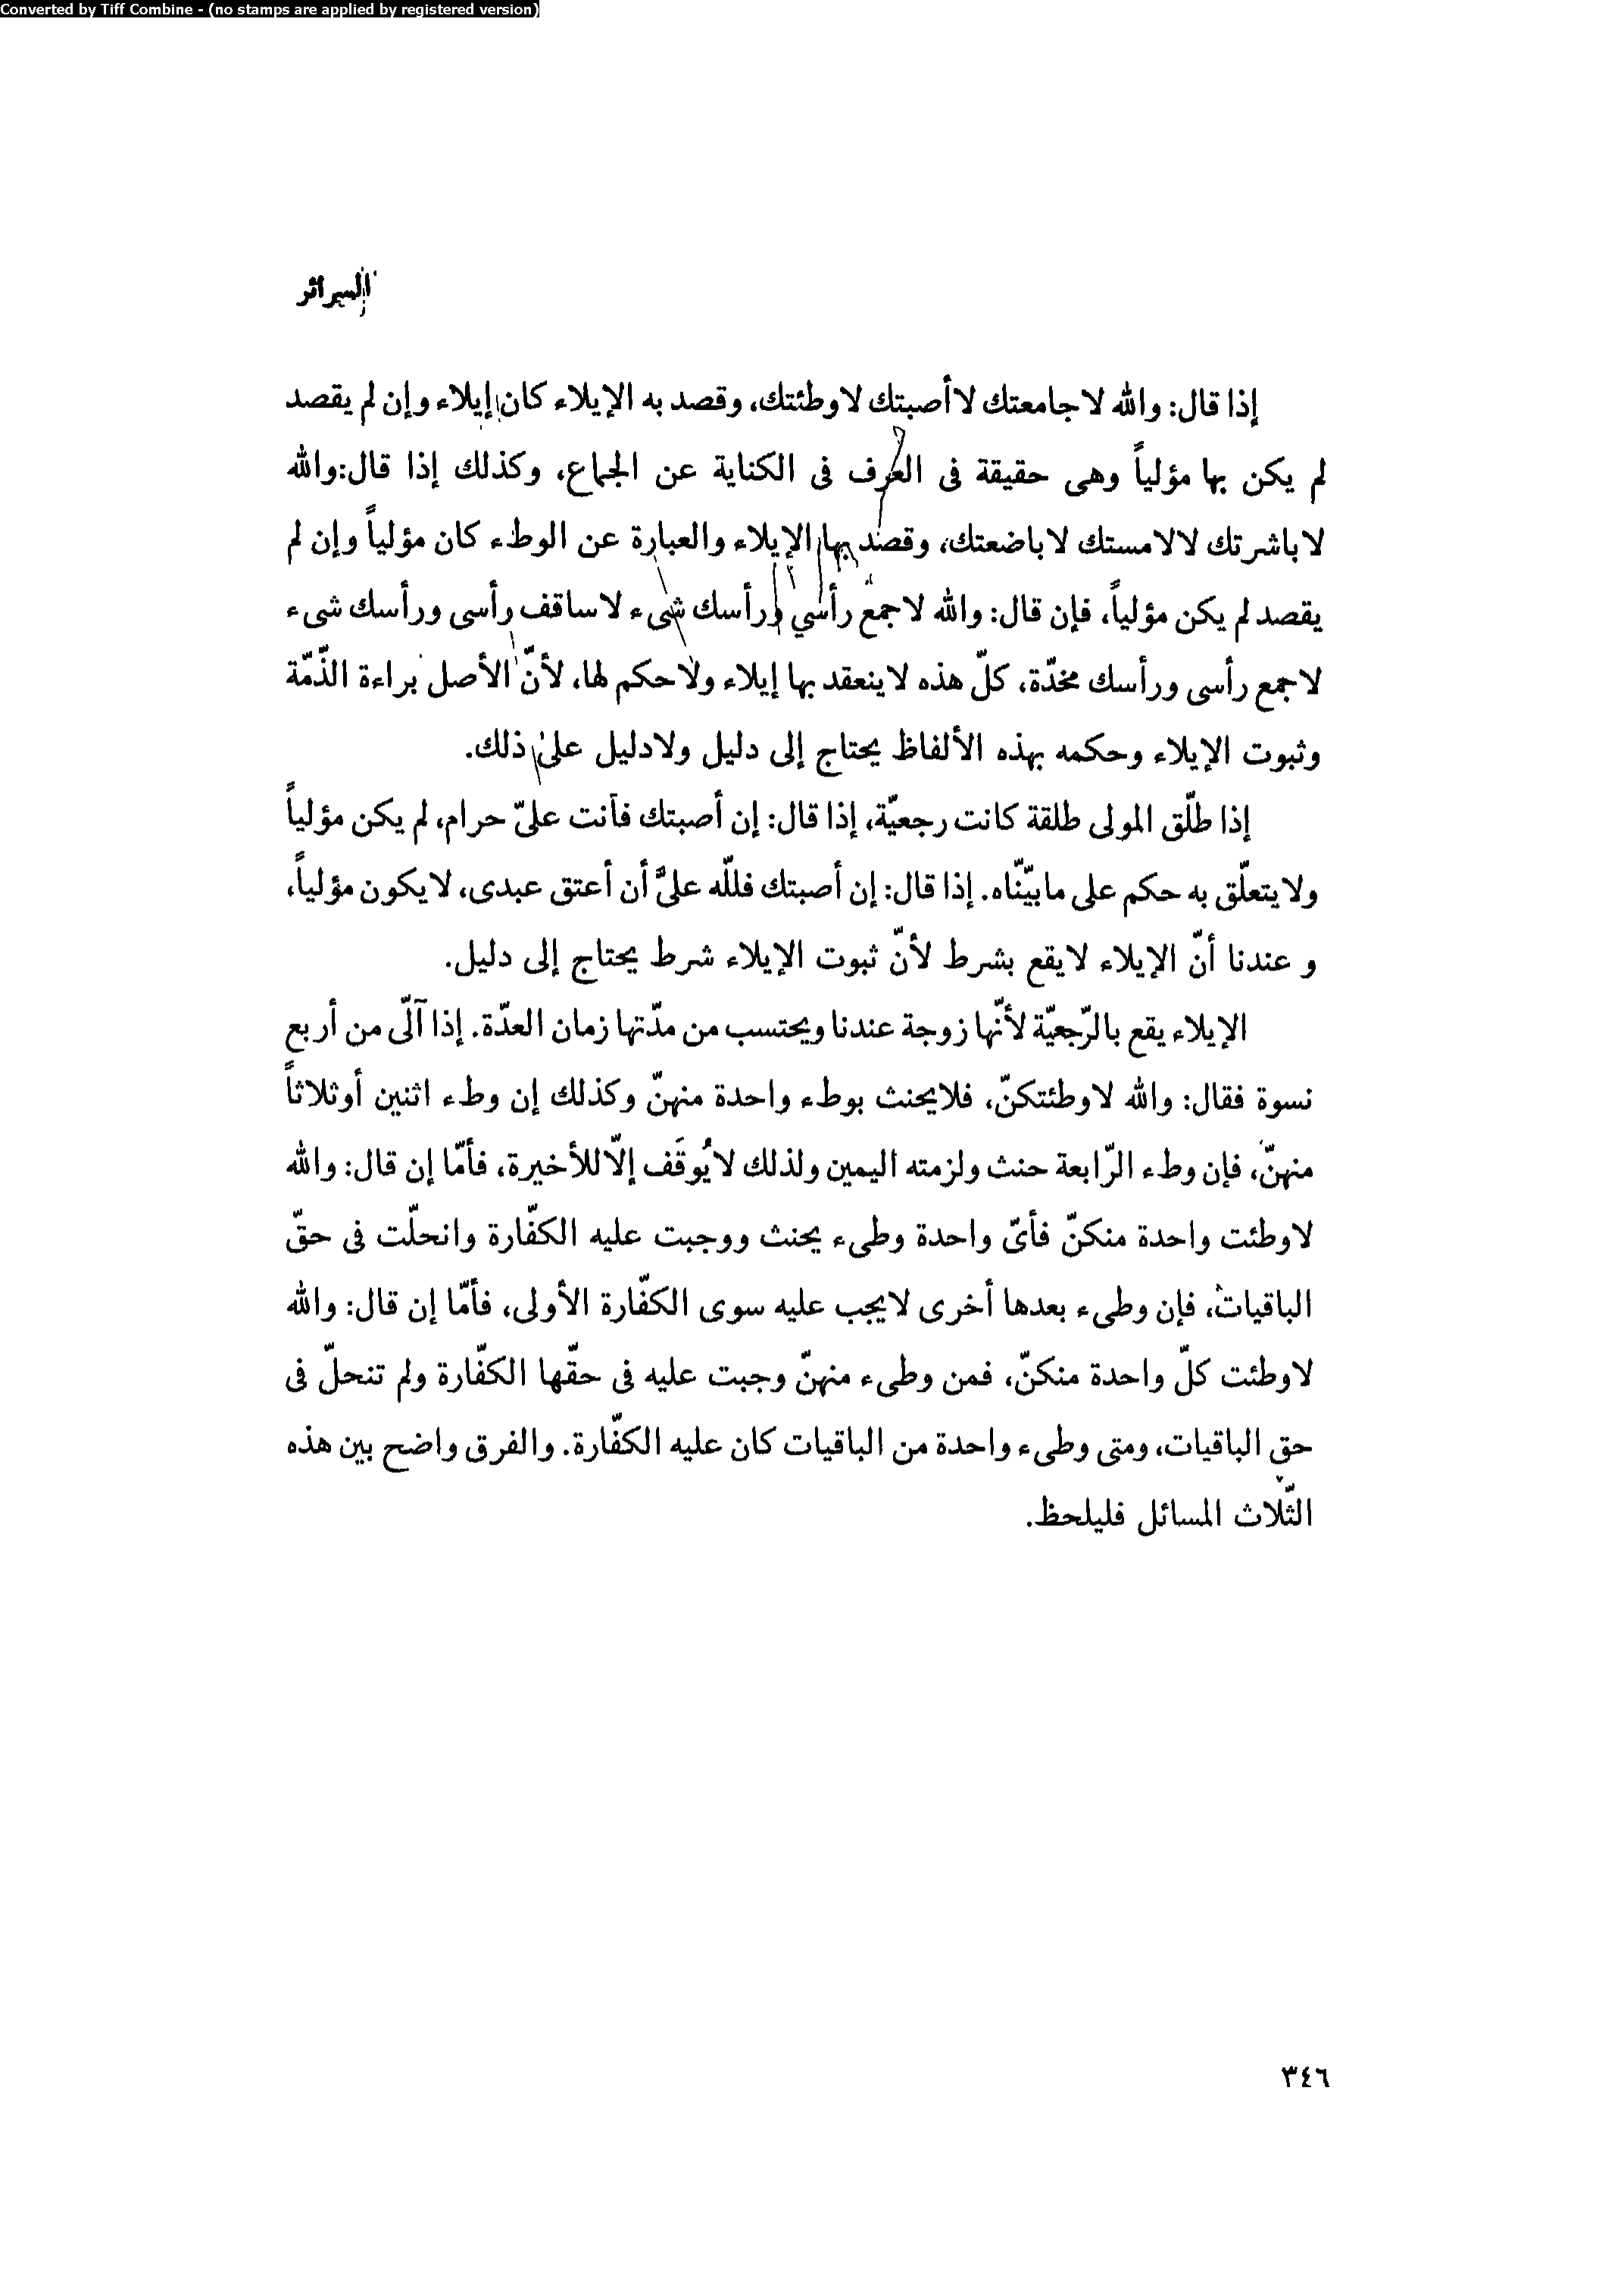 Converted by Tiff Combine - (no stamps are applied by registered version)
السرائر
إذا قال: والله لا جامعتك لا أصبتك لا وطئتك، وقصد به الإيلاء كان إيلاء وإن لم يقصد
لم يكن بها مؤلياً وهى حقيقة فى العرف فى الكناية عن الجماع، وكذلك إذا قال:والله
لا باشرتك لا لامستك لا باضعتك، وقصد بها الإيلاء والعبارة عن الوطء كان مؤلياً وإن لم
يقصد لم يكن مؤلياً، فإن قال: والله لا جمع رأسي ورأسك شىء لا ساقف رأسى ورأسك شىء
لا جمع رأسى ورأسك مخدّة، كلّ هذه لا ينعقد بها إيلاء ولا حكم لها، لأنّ الأصل براءة الذّمّة
وثبوت الإيلاء وحكمه بهذه الألفاظ يحتاج إلى دليل ولا دليل على ذلك.
إذا طلّق المولى طلقة كانت رجعيّة، إذا قال: إن أصبتك فأنت علىّ حرام، لم يكن مؤلياً
ولا يتعلّق به حكم على ما بيّنّاه. إذا قال: إن أصبتك فللّه علىَّ أن أعتق عبدى، لا يكون مؤلياً،
و عندنا أنّ الإيلاء لا يقع بشرط لأنّ ثبوت الإيلاء شرط يحتاج إلى دليل.
الإيلاء يقع بالرّجعيّة لأنّها زوجة عندنا ويحتسب من مدّتها زمان العدّة. إذا آلّى من أربع
نسوة فقال: والله لا وطئتكنّ، فلا يحنث بوطء واحدة منهنّ وكذلك إن وطء اثنين أو ثلاثاً
منهنّ، فإن وطء الرّابعة حنث ولزمته اليمين ولذلك لا يُوقَف إلاّ للأخيرة، فأمّا إن قال: والله
لا وطئت واحدة منكنّ فأىّ واحدة وطىء يحنث ووجبت عليه الكفّارة وانحلّت فى حقّ
الباقيات، فإن وطىء بعدها أخرى لا يجب عليه سوى الكفّارة الأولى، فأمّا إن قال: والله
لا وطئت كلّ واحدة منكنّ، فمن وطىء منهنّ وجبت عليه فى حقّها الكفّارة ولم تنحلّ فى
حق الباقيات، ومتى وطىء واحدة من الباقيات كان عليه الكفّارة. والفرق واضح بين هذه
الثّلاث المسائل فليلحظ.
٣٤٦